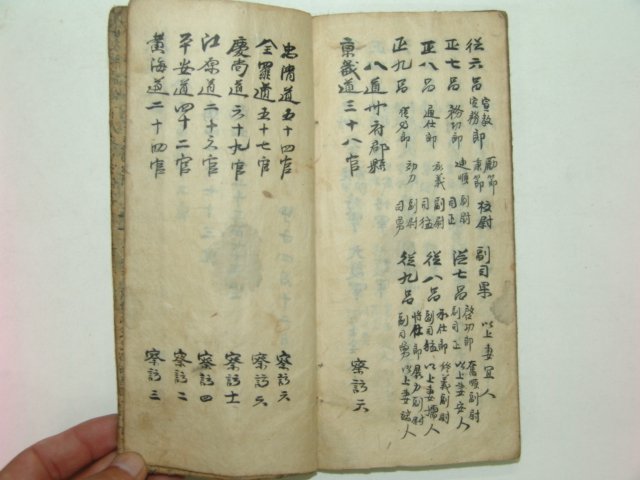 從六品 宣敎郎 宣務郎 勵節 秉節 校尉 副司果 以上妻宜人
正七品 務功郎 迪順副尉 司正 從七品 啓功郎 副司正 奮順副尉 以上妻安人
正八品 通仕郎 承義副尉 司猛 從八品 承仕郎 副司猛 修義副尉 以上妻孺人
正九品 從仕郎 効力副尉 司勇 從九品 將仕郎 副司勇 展力副尉 以上妻端人
八道卅府郡縣
京畿道三十八官 察訪六
忠淸道五十四官 察訪六
全羅道五十七官 察訪六
慶尙道六十九官 察訪十一
江原道二十六官 察訪四
平安道四十二官 察訪二
黃海道二十四官 察訪三